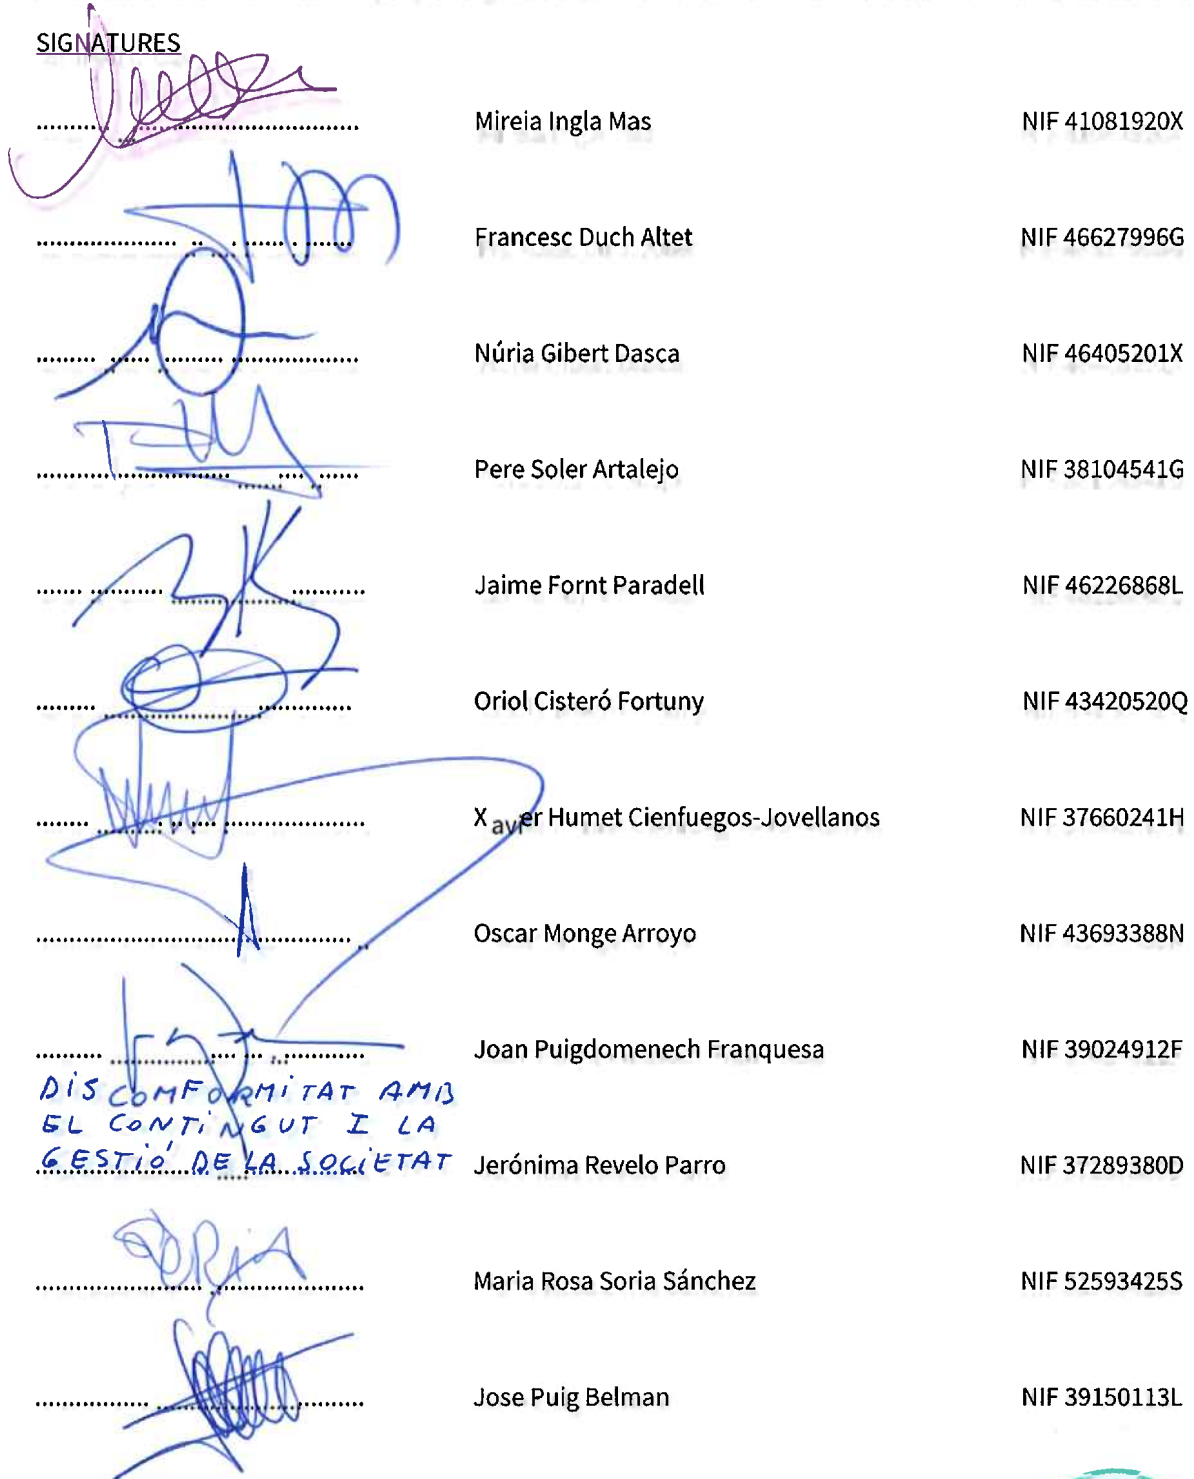 SIGNATURES
Mireia Ingla Mas NIF 41081920X
Francesc Duch Altet NIF 46627996G
Núria Gibert Dasca NIF 46405201X
Pere Soler Artalejo NIF 38104541G
Jaime Fornt Paradell NIF 46226868L
Oriol Cisteró Fortuny NIF 43420520Q
Xavier Humet Cienfuegos-Jovellanos NIF 37660241H
Oscar Monge Arroyo NIF 43693388N
Joan Puigdomenech Franquesa NIF 39024912F
DISCOMFORMITAT AMB
EL CONTINGUT I LA
GESTIÓ DE LA SOCIETAT Jerónima Revelo Parro NIF 37289380D
Maria Rosa Soria Sánchez NIF 52593425S
Jose Puig Belman NIF 39150113L